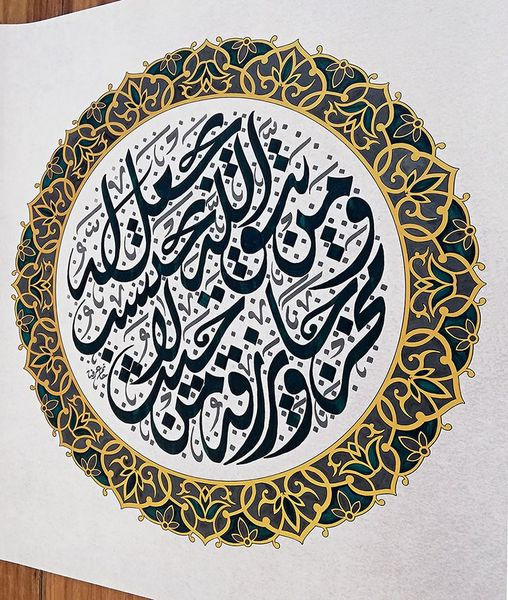 ومن يتق الله يجعل له
مخرجا ويرزقه من حيث لا يحتسب